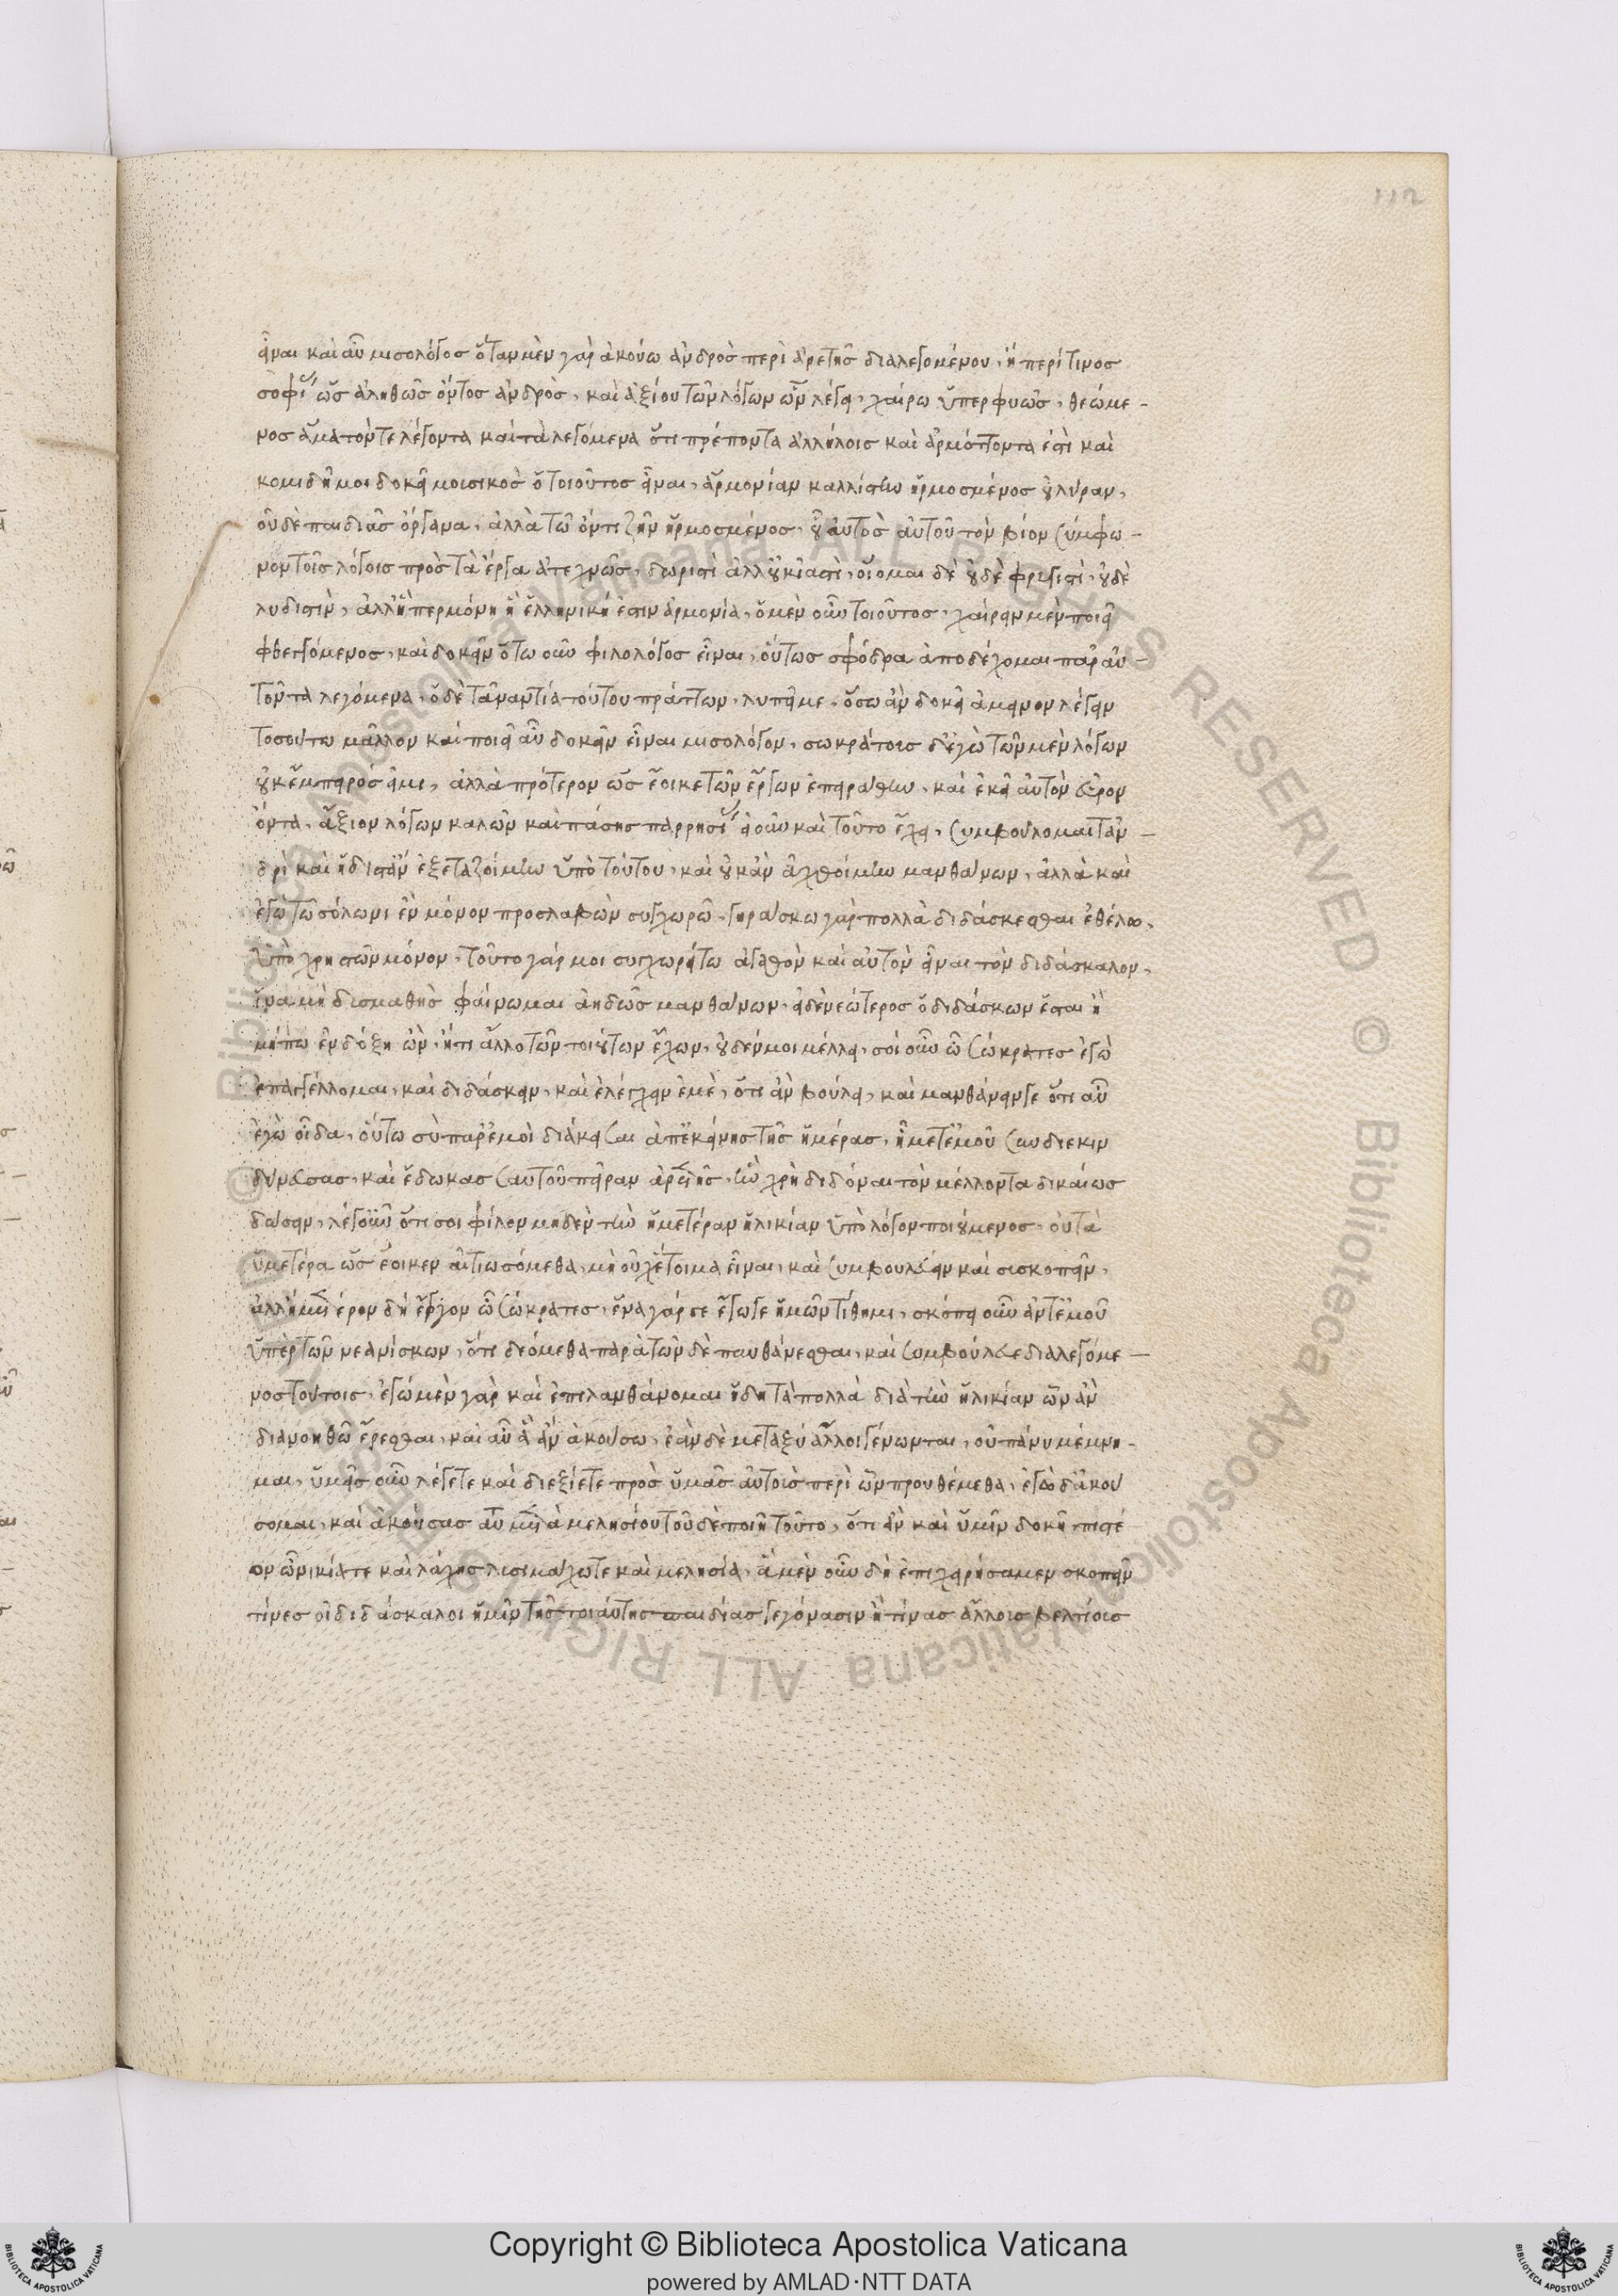 112
εἶναι καὶ αὖ μισολόγος ὅταν μὲν γὰρ ἀκούω ἀνδρὸς περὶ ἀρετῆς διαλεγομένου, ἢ περί τινος
σοφίας ὡς ἀληθῶς ὄντος ἀνδρὸς, καὶ ἀξίου τῶν λόγων ὧν λέγει, χαίρω ὑπερφυῶς, θεώμε-
νος ἅμα τόν τε λέγοντα καὶ τὰ λεγόμενα ὅτι πρέποντα ἀλλήλοις καὶ ἁρμόττοντα ἐστὶ καὶ
κομιδῆ μοι δοκεῖ μουσικὸς ὁ τοιοῦτος εἶναι, ἁρμονίαν καλλίστην ἡρμοσμένος οὐ λύραν,
οὐδὲ παιδιᾶς ὄργανα, ἀλλὰ τῶ ὄντι ζῆν ἡρμοσμένος, οὗ αὐτὸς αὑτοῦ τὸν βίον σύμφω-
νον τοῖς λόγοις πρὸς τὰ ἔργα ἀτεχνῶς, δωριστὶ ἀλλ' οὐκ ἰαστὶ, οἴομαι δὲ οὐδὲ φρυγιστὶ, οὐδὲ
λυδιστὶν, ἀλλ' ἥπερ μόνη ἡ ἑλληνική ἐστιν ἁρμονία, ὁ μὲν οὖν τοιοῦτος, χαίρειν με ποιεῖ
φθεγγόμενος, καὶ δοκεῖν ὅτω οὖν φιλολόγος εἶναι, οὕτως σφόδρα ἀποδέχομαι παρ' αὐ-
τοῦ τὰ λεγόμενα, ὁ δὲ τἀναντία τούτου πράττων, λυπεῖ με, ὅσω ἂν δοκεῖ ἄμεινον λέγειν
τοσούτω μᾶλλον καὶ ποιεῖ αὖ δοκεῖν εἶναι μισολόγον, σωκράτους δ' ἐγὼ τῶν μὲν λόγων
οὐκ ἔμπειρός εἰμι, ἀλλὰ πρότερον ὡς ἔοικε τῶν ἔργων ἐπειράθην, καὶ ἐκεῖ αὐτὸν εὗρον
ὄντα, ἄξιον λόγων καλῶν καὶ πάσης παρρησίας εἰ οὖν καὶ τοῦτο ἔχει, συμβούλομαι τἀν-
δρὶ καὶ ἥδιστ' ἂν ἐξεταζοίμην ὑπὸ τούτου, καὶ οὐκ ἂν ἀχθοίμην μανθάνων, ἀλλὰ καὶ
ἐγὼ τῶ σόλωνι ἓν μόνον προσλαβὼν συγχωρῶ, γηράσκω γὰρ πολλὰ διδάσκεσθαι ἐθέλω,
ὑπὸ χρηστῶν μόνον, τοῦτο γάρ μοι συγχωρείτω ἀγαθὸν καὶ αὐτὸν εἶναι τὸν διδάσκαλον,
ἵνα μὴ δυσμαθὴς φαίνωμαι ἀηδῶς μανθάνων, εἰ δὲ νεώτερος ὁ διδάσκων ἔσται ἢ
μήπω ἐν δόξη ὢν, ἤ τι ἄλλο τῶν τοιούτων ἔχων, οὐδέν μοι μέλλει, σοὶ οὖν ὦ σώκρατες ἐγὼ
ἐπαγγέλλομαι, καὶ διδάσκειν, καὶ ἐλέγχειν ἐμὲ, ὅτι ἂν βούλει, καὶ μανθάνειν γε ὅτι αὖ
ἐγὼ οἶδα, οὕτω σὺ παρ' ἐμοὶ διάκεισαι ἀπ' ἐκείνης τῆς ἡμέρας, ᾗ μετ' ἐμοῦ συνδιεκιν
δύνευσας, καὶ ἔδωκας σαυτοῦ πεῖραν ἀρετῆς, ἣν χρὴ διδόναι τὸν μέλλοντα δικαίως
δώσειν, λέγ' οὖν ὅτι σοι φίλον μηδὲν τὴν ἡμετέραν ἡλικίαν ὑπόλογον ποιούμενος, οὐ τὰ
ὑμετέρα ὡς ἔοικεν αἰτιωσόμεθα, μὴ οὐχ ἕτοιμα εἶναι, καὶ συμβουλεύειν καὶ συσκοπεῖν,
ἀλλ' ἡμέτερον δὴ ἔργον ὦ σώκρατες, ἕνα γάρ σε ἔγωγε ἡμῶν τίθημι, σκόπει οὖν ἀντ' ἐμοῦ
ὑπὲρ τῶν νεανίσκων, ὅτι δεόμεθα παρὰ τῶνδε πυνθάνεσθαι, καὶ συμβούλευε διαλεγόμε-
νος τούτοις, ἐγὼ μὲν γὰρ καὶ ἐπιλανθάνομαι ἤδη τὰ πολλὰ διὰ τὴν ἡλικίαν ὧν ἂν
διανοηθῶ ἔρεσθαι, καὶ αὖ ἃ ἂν ἀκούσω, ἐὰν δὲ μεταξὺ ἄλλοι γένωνται, οὐ πάνυ μέμνη-
μαι, ὑμεῖς οὖν λέγετε καὶ διεξίετε πρὸς ὑμᾶς αὐτοὺς περὶ ὧν προυθέμεθα, ἐγὼ δ' ἀκού
σομαι, καὶ ἀκούσας αὖ μετὰ μελησίου τοῦδε ποιῆ τοῦτο, ὅτι ἂν καὶ ὑμῖν δοκῆ, πιστέ
ον ὦ νικία τε καὶ λάχης λυσιμάχω τε καὶ μελησία, ἃ μὲν οὖν δὴ ἐπιχειρήσαμεν σκοπεῖν
τίνες οἱ διδάσκαλοι ἡμῖν τῆς τοιαύτης παιδίας γεγόνασιν ἢ τίνας ἄλλους βελτίους
Copyright © Biblioteca Apostolica Vaticana
powered by AMLAD·NTT DATA